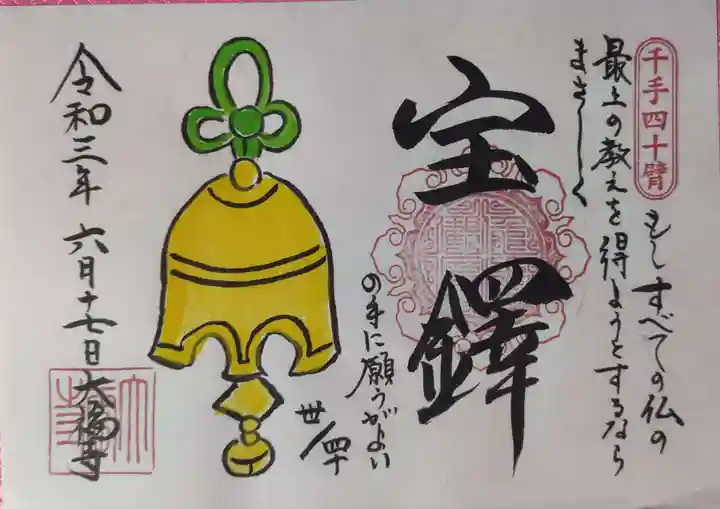 千手四十臂
もしすべての仏の
最上の教えを得ようとするなら
まさしく
宝鐸
の手に願うがよい
卅/四十
令和三年 六月十七日 大福寺